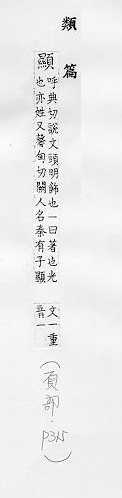 類篇
顯 呼典切說文頭明飾也一曰著也光
也亦姓又馨甸切闕人名秦有子顯
文一重
音一
(頁部·P315)